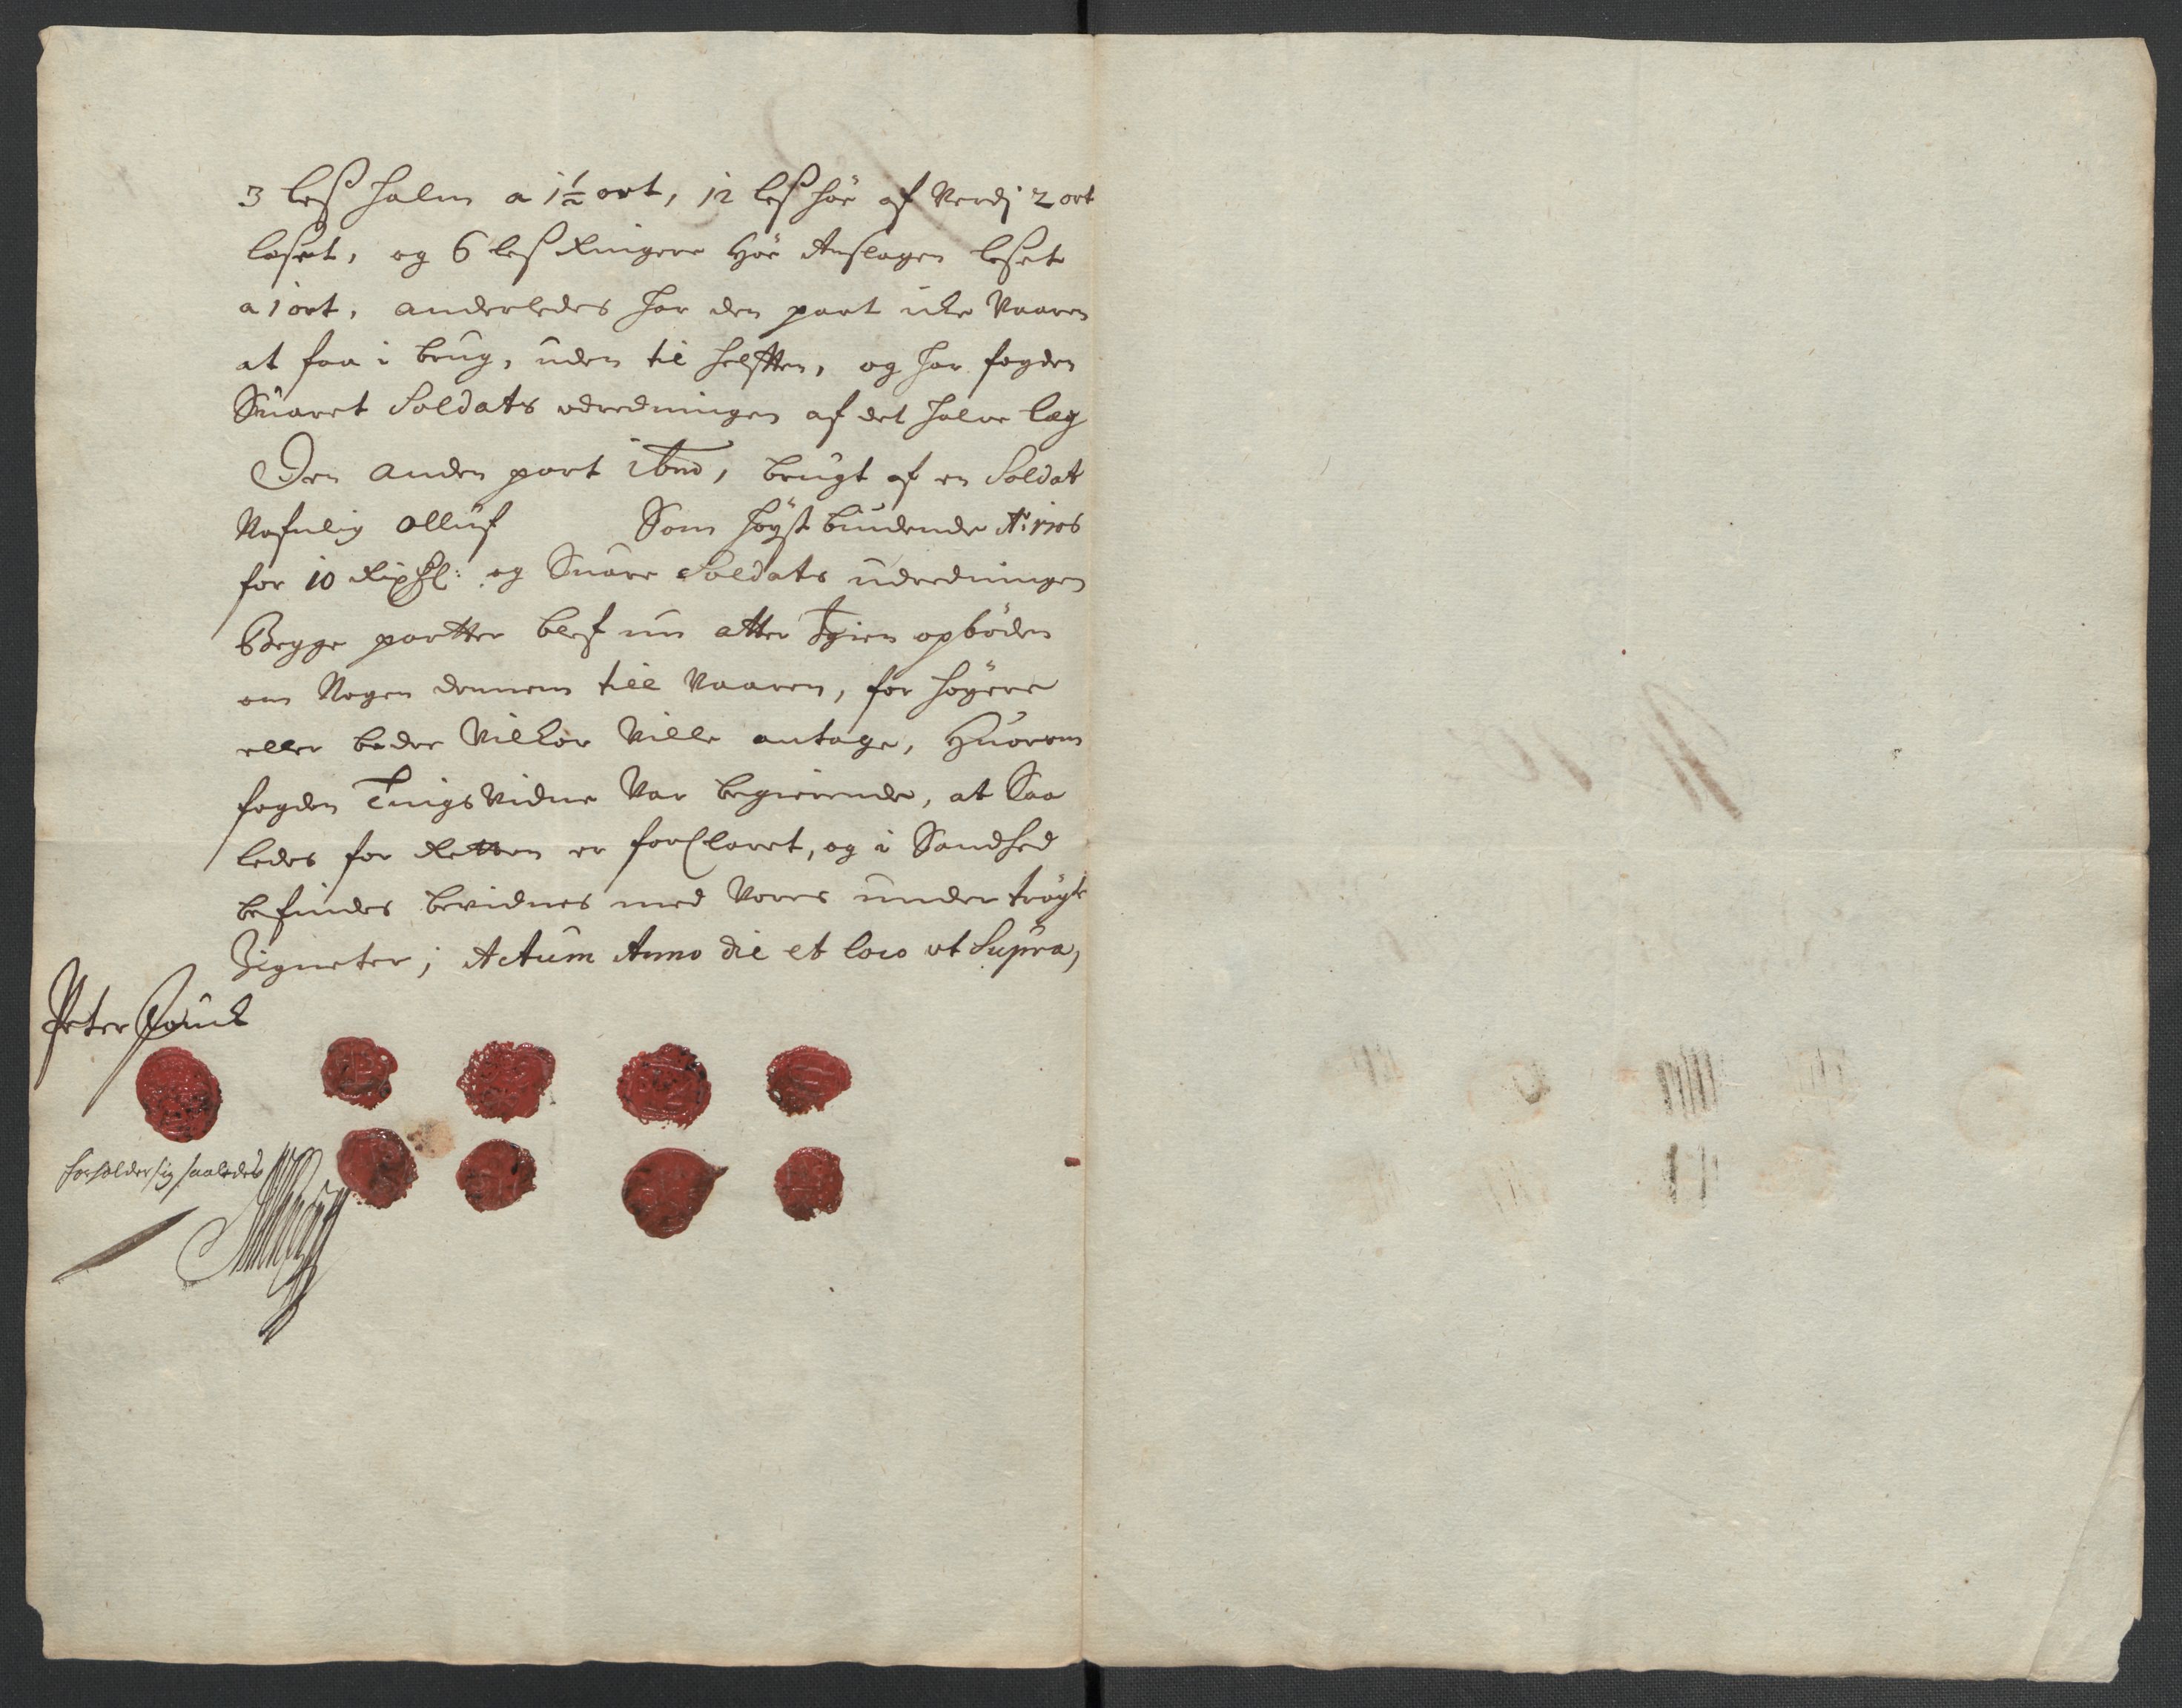 3 less halm a 1½ ort, 12 less höe af Verdj 2 ort
læset, og 6 less Ringere Höe Anslagen leset
a 1 ort, anderledes har den part icke Vaaren
at faa i brug, uden til helfften, og har fogden
Suaret Soldats udredningen af det halve læg
Den anden part ibm, brugt af en Soldat
Nafnlig Olluf Som högstbiudende Ao: 1706
for 10 Rixdl: og Suare Soldats udredningen
Begge partter blef nu atter Igien opböden
om Nogen dennem till Vaaren, for höyere
eller bedre Vilkor Ville antage, Huorom
fogden Tings Vidne Var begierende, at Saa
ledes for Retten er forclaret, og i Sandhed
befindes bevidnes med Vores under trögte
Zigneter; Actum Anno die et loco ut Supra,
Peter
forholder sig saaledes